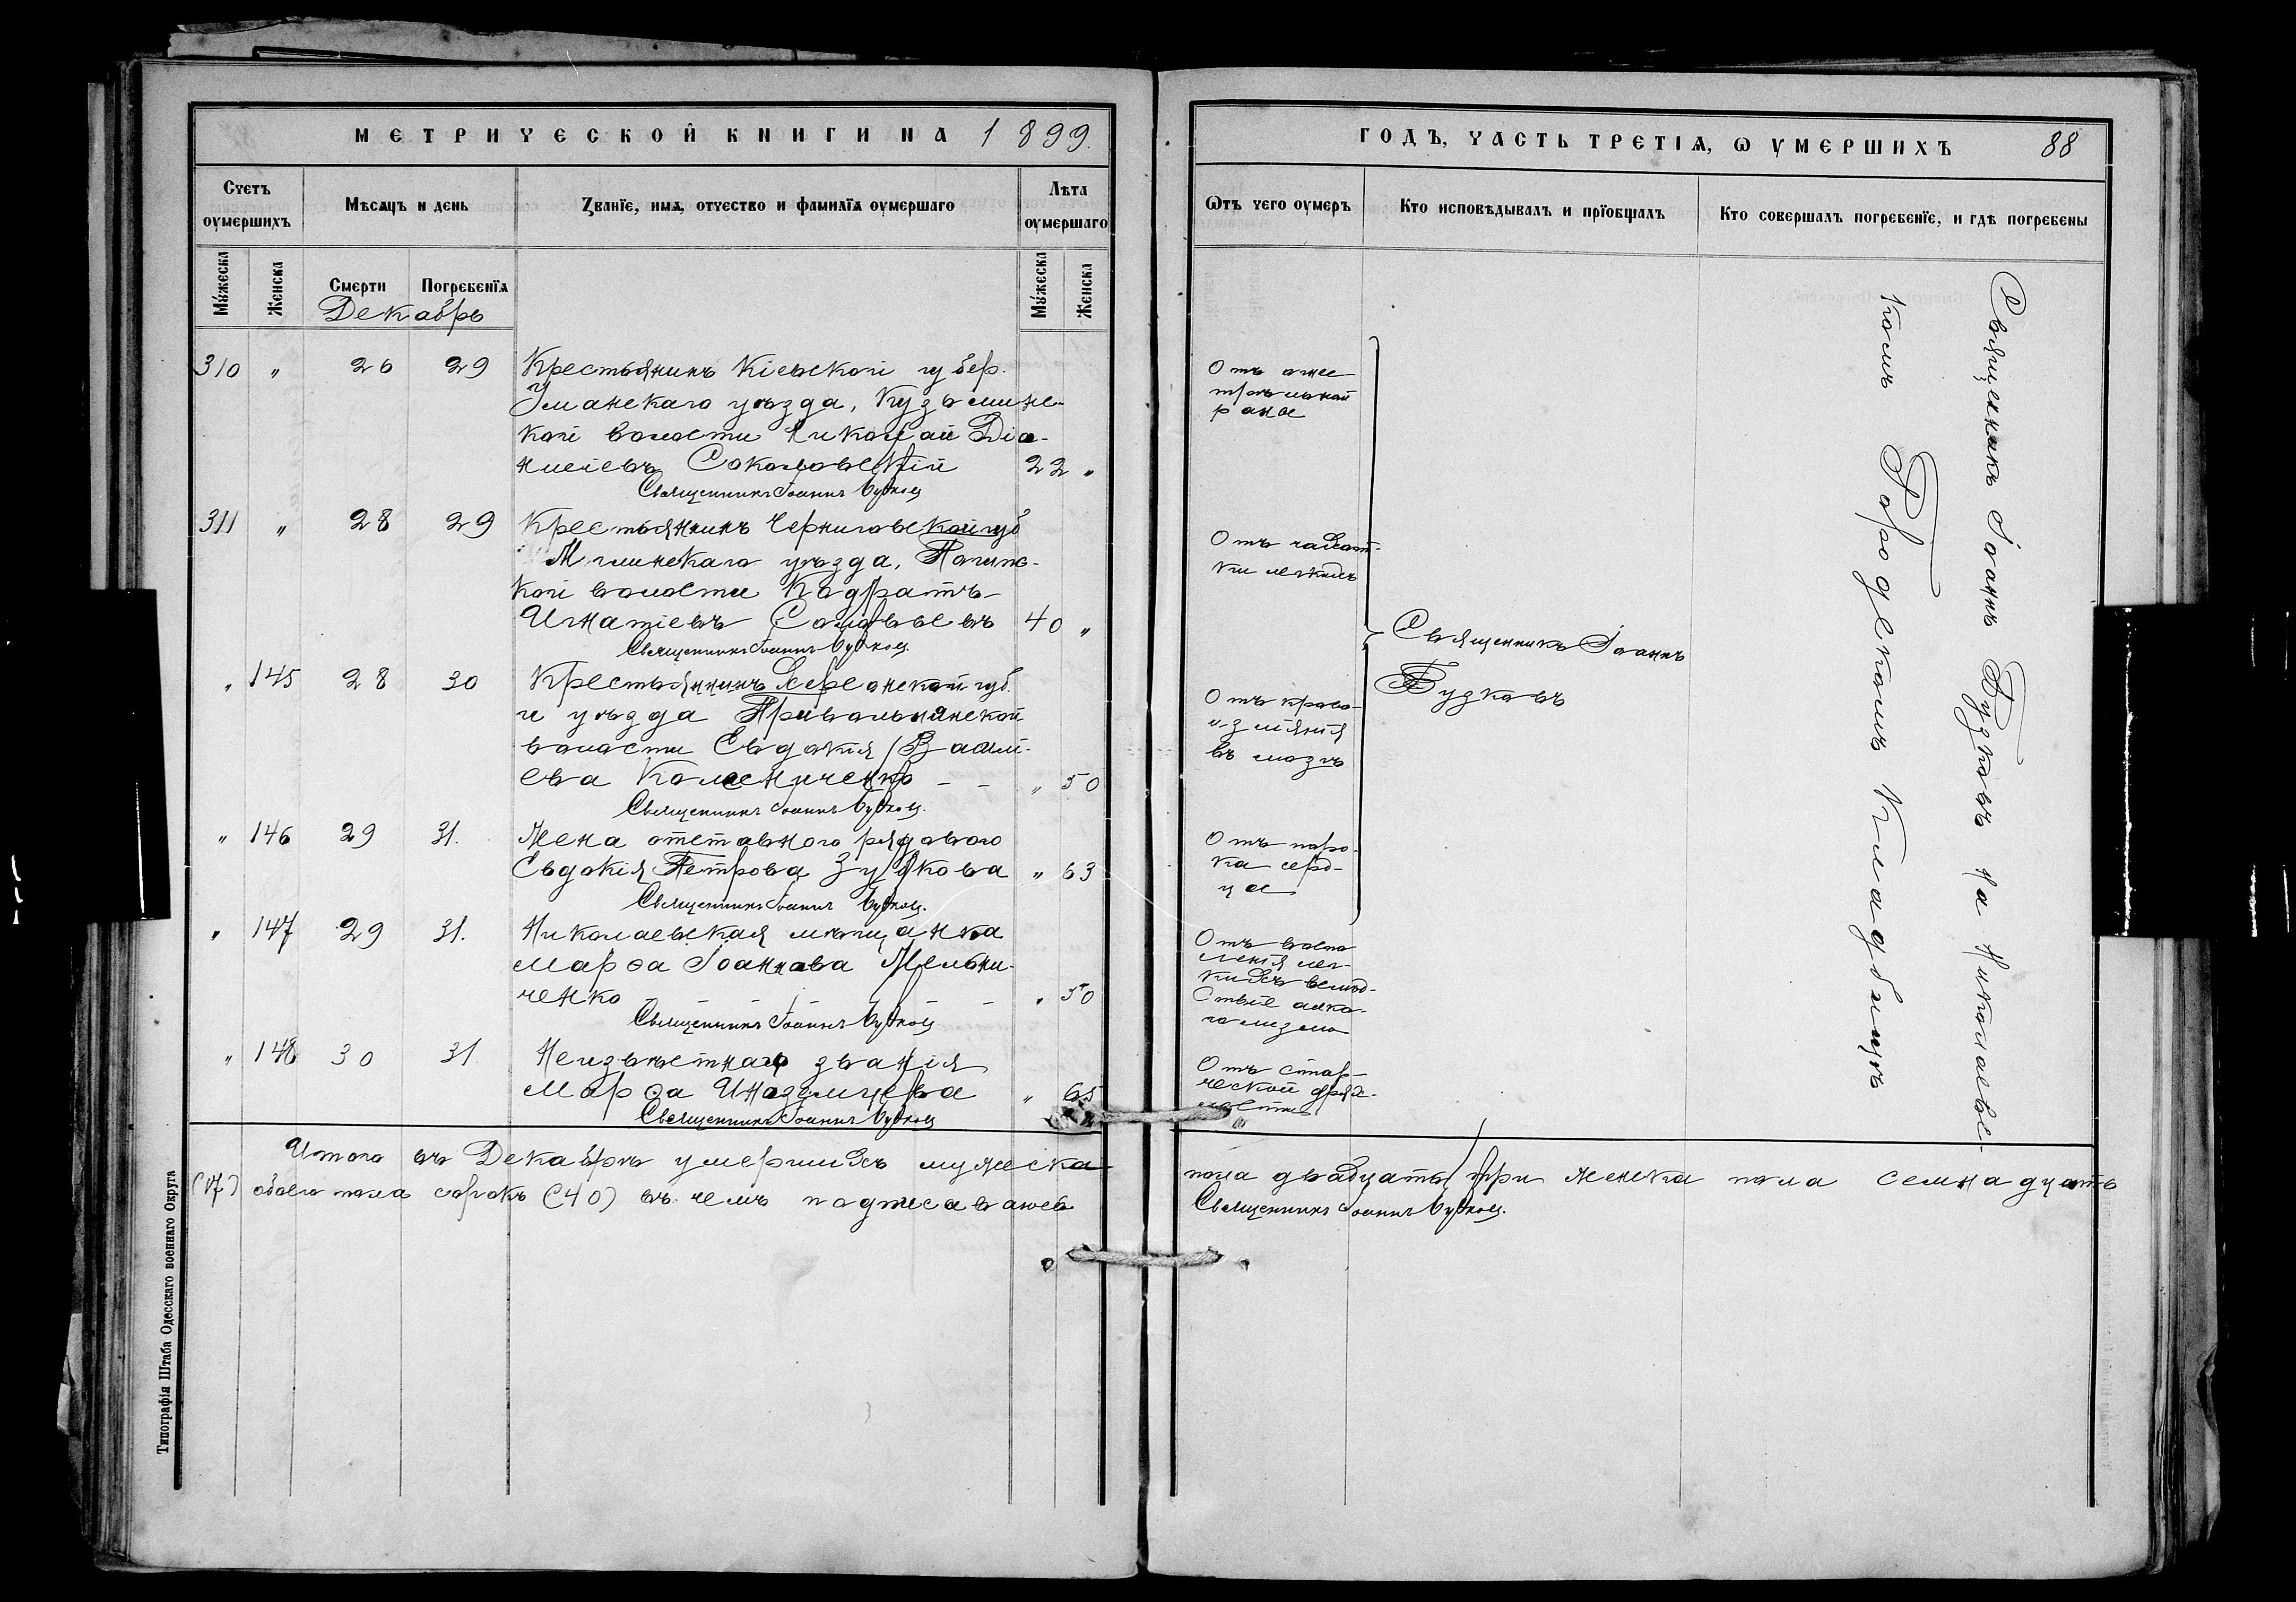 МЕТРИЧЕСКОЙ КНИГИ НА 1899.
Счетъ умершихъ
Мѣсяцъ и день
Званіе, имя, отчество и фамилія умершаго
Лѣта умершаго
Мужеска
Женска
Смерти
Погребенія
Мужеска
Женска
Декабрь
310 " 26 29 Крестьянинъ Кіевской губер.
Уманскаго уѣзда, Кузьминс-
кой волости Николай Діо-
нисіевъ Соколовскій 22 "
Священникъ Іоаннъ Бузковъ
311 " 28 29 Крестьянинъ Черниговской губ
Мглинскаго уѣзда,
кой волости Кодратъ
Игнатіевъ Соловьевъ 40 "
Священникъ Іоаннъ Бузковъ
" 145 28 30 Крестьянинъ Херсонской губ.
и уѣзда Привольнянской
волости Евдокія Васи-
ева Коленниченко - - " 50
Священникъ Іоаннъ Бузковъ.
" 146 29 31. Жена отставного рядового
Евдокія Петрова Зубкова " 63
Священникъ Іоаннъ Бузковъ.
" 147 29 31. Николаевская мѣщанка
Марѳа Іоаннова Мельни-
ченко - - - - - - " 50
Священникъ Іоаннъ Бузковъ
" 148 30 31 Неизвѣстнаго званія
Марѳа Иноземцева " 65
Священникъ Іоаннъ Бузковъ
Итого въ Декабрѣ умершихъ мужеска
(17) обоего пола сорокъ (40) въ чемъ подписываюсь
Типографія Штаба Одесскаго военнаго Округа
ГОДЪ, ЧАСТЬ ТРЕТІЯ, О УМЕРШИХЪ 88
Отъ чего умеръ
Кто исповѣдывалъ и пріобщалъ
Кто совершалъ погребеніе, и гдѣ погребены
Отъ огнес
трѣльной
раны
Отъ чахот-
ки легкихъ
Отъ крово-
изліянія
въ мозгъ
Отъ поро-
ка серд-
ца
Отъ воспа
ленія лег-
кихъ вслѣд-
ствіе алко-
голизма
Отъ стар-
ческой дрях-
лости
Священникъ Іоаннъ
Бузковъ
Священникъ Іоаннъ Бузковъ на Николаевс-
комъ Городскомъ Кладбищѣ
пола двадцать три женска пола семнадцать
Священникъ Іоаннъ Бузковъ.